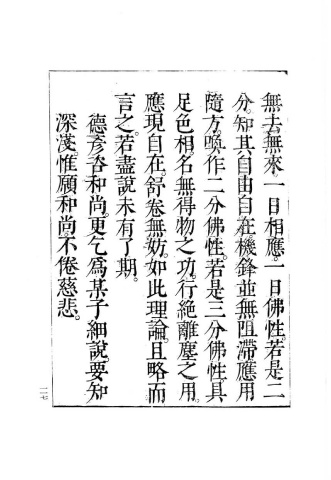 無去無來。一日相應。一日佛性。若是二
分。知其自由自在。機鋒並無阻滯。應用
隨方。喚作二分佛性。若是三分佛性。具
足色相。名無得物之功。行絕離塵之用。
應現自在。舒卷無妨。如此理論。且略而
言之。若盡說未有了期。
德彥咨和尚。更乞爲某子細說。要知
深淺。惟願和尚。不倦慈悲。
二七